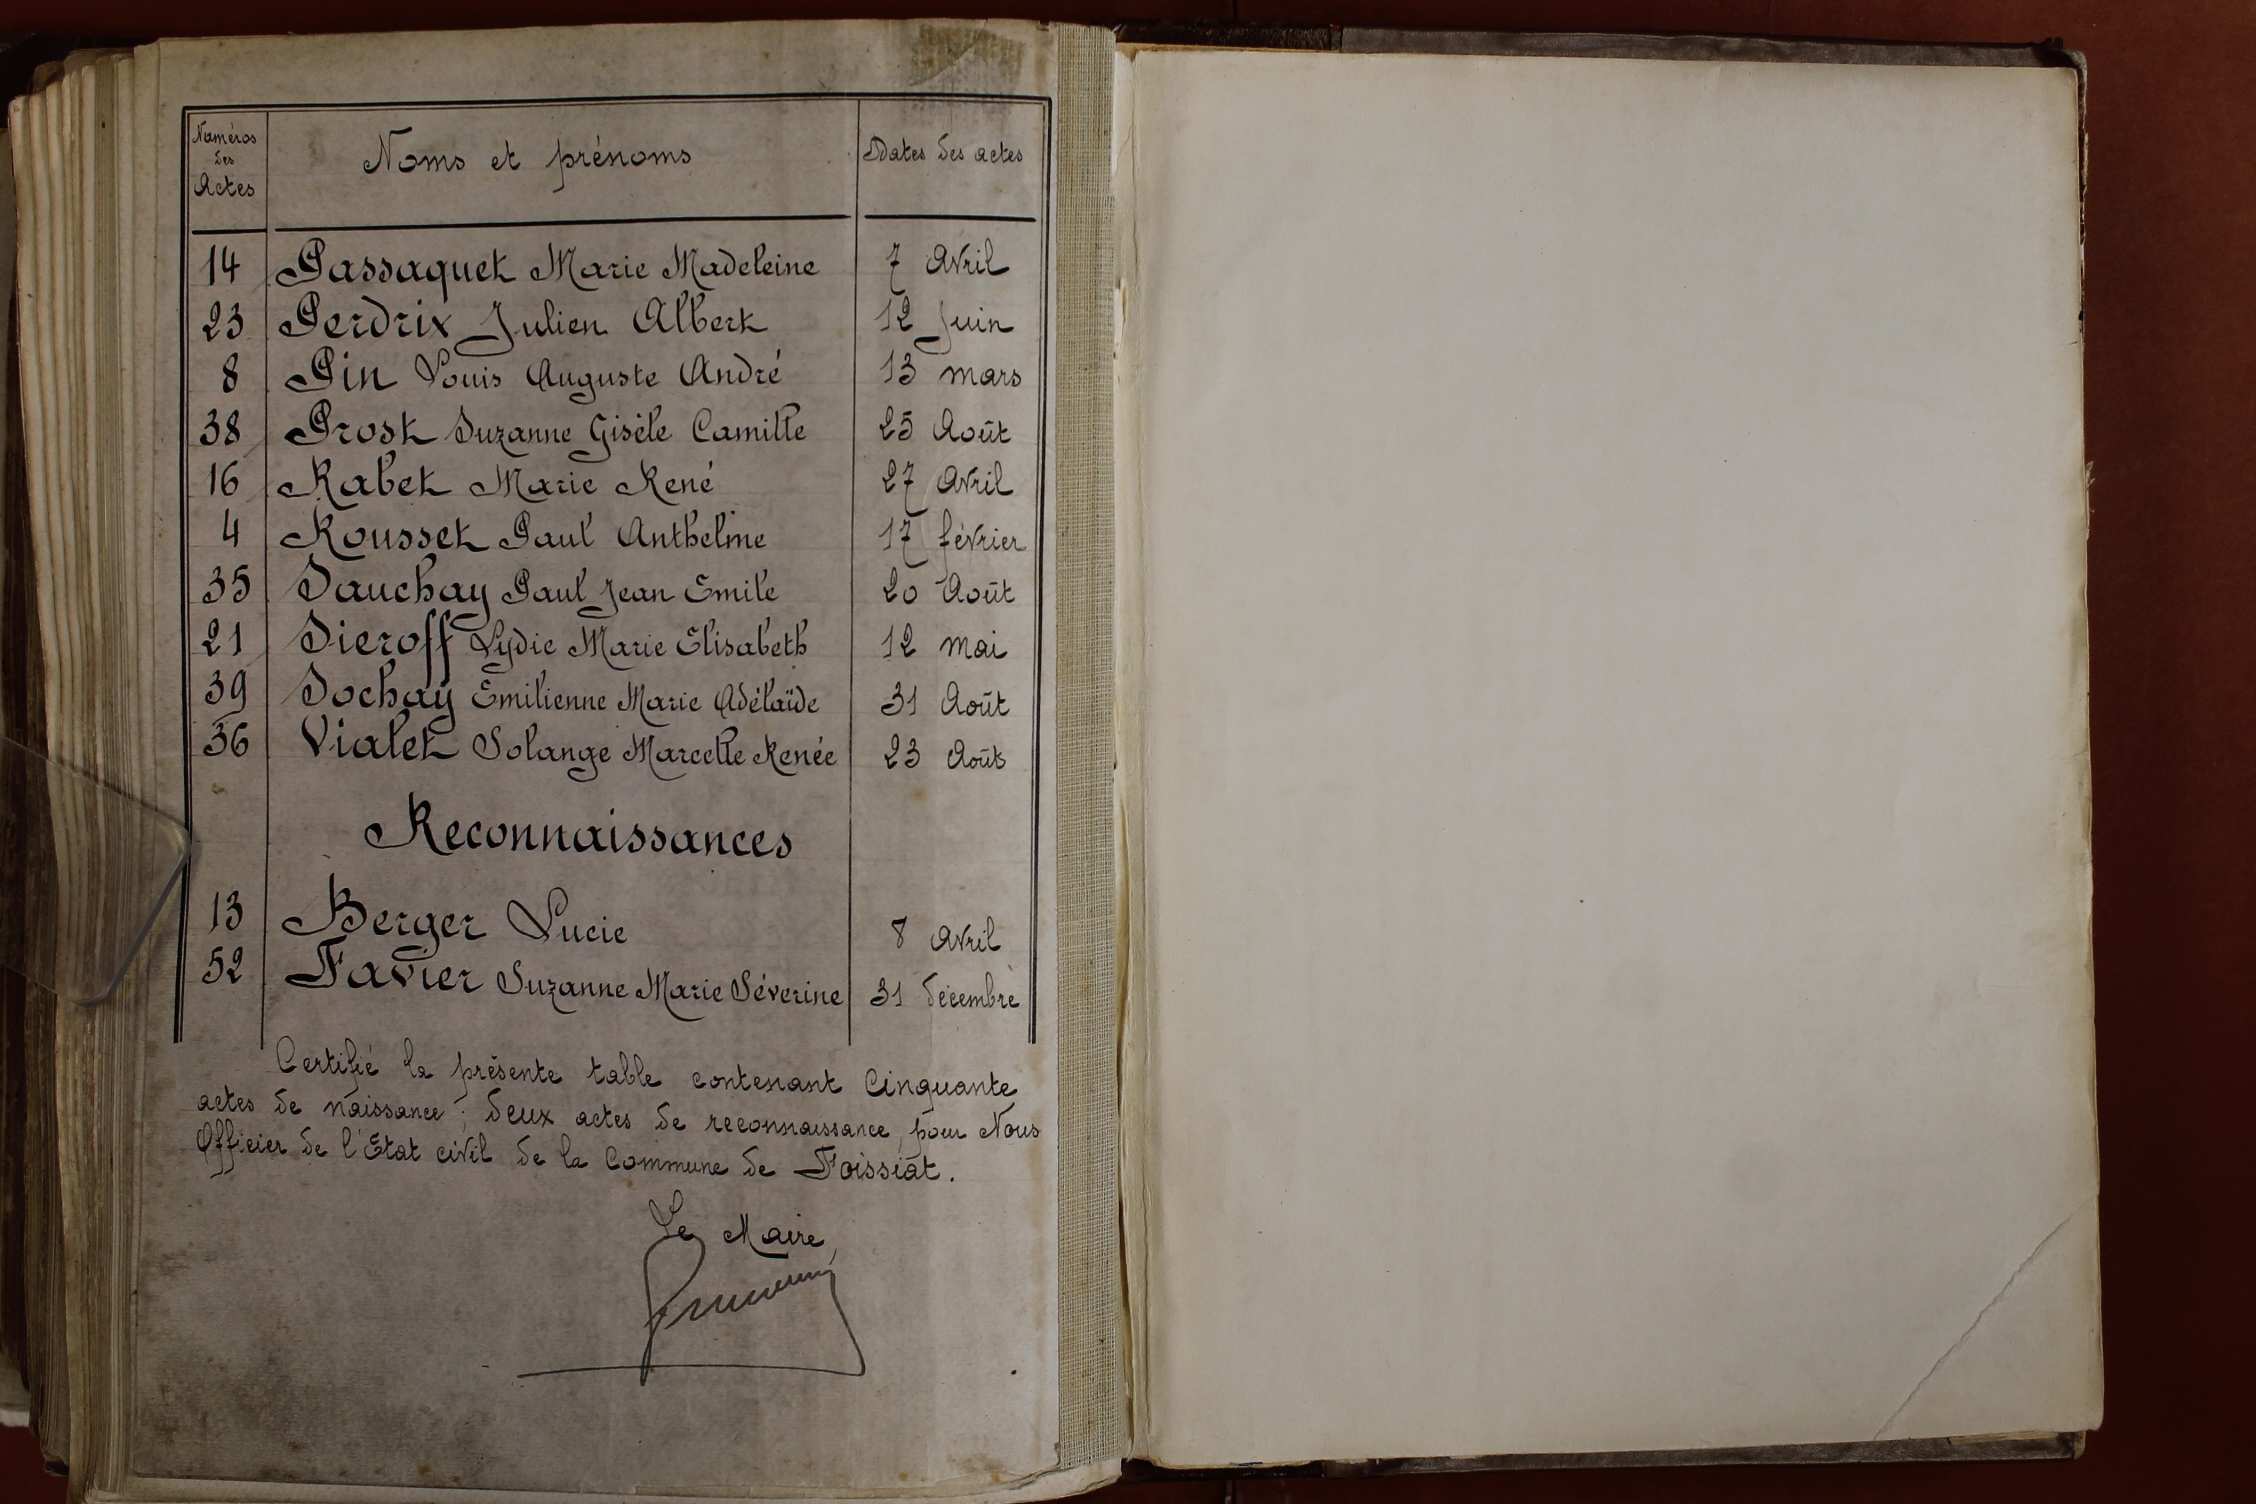 Numéros des Actes | Noms et prénoms | Dates des actes
14 Passaquet Marie Madeleine 7 Avril
23 Perdrix Julien Albert 12 Juin
8 Pin Louis Auguste André 13 mars
38 Prost Suzanne Gisèle Camille 25 Août
16 Rabet Marie René 27 Avril
4 Rousset Paul Anthelme 17 février
35 Sauchay Paul Jean Emile 20 Août
21 Sieroff Lydie Marie Elisabeth 12 mai
39 Sochay Emilienne Marie Adélaïde 31 Août
36 Vialet Solange Marcelle Renée 23 Août
Reconnaissances
13 Berger Lucie 8 Avril
52 Favier Suzanne Marie Séverine 31 décembre
Certifié la présente table contenant Cinquante
actes de naissance ; deux actes de reconnaissance, pour Nous
Officier de l'Etat civil de la Commune de Foissiat.
Le Maire,